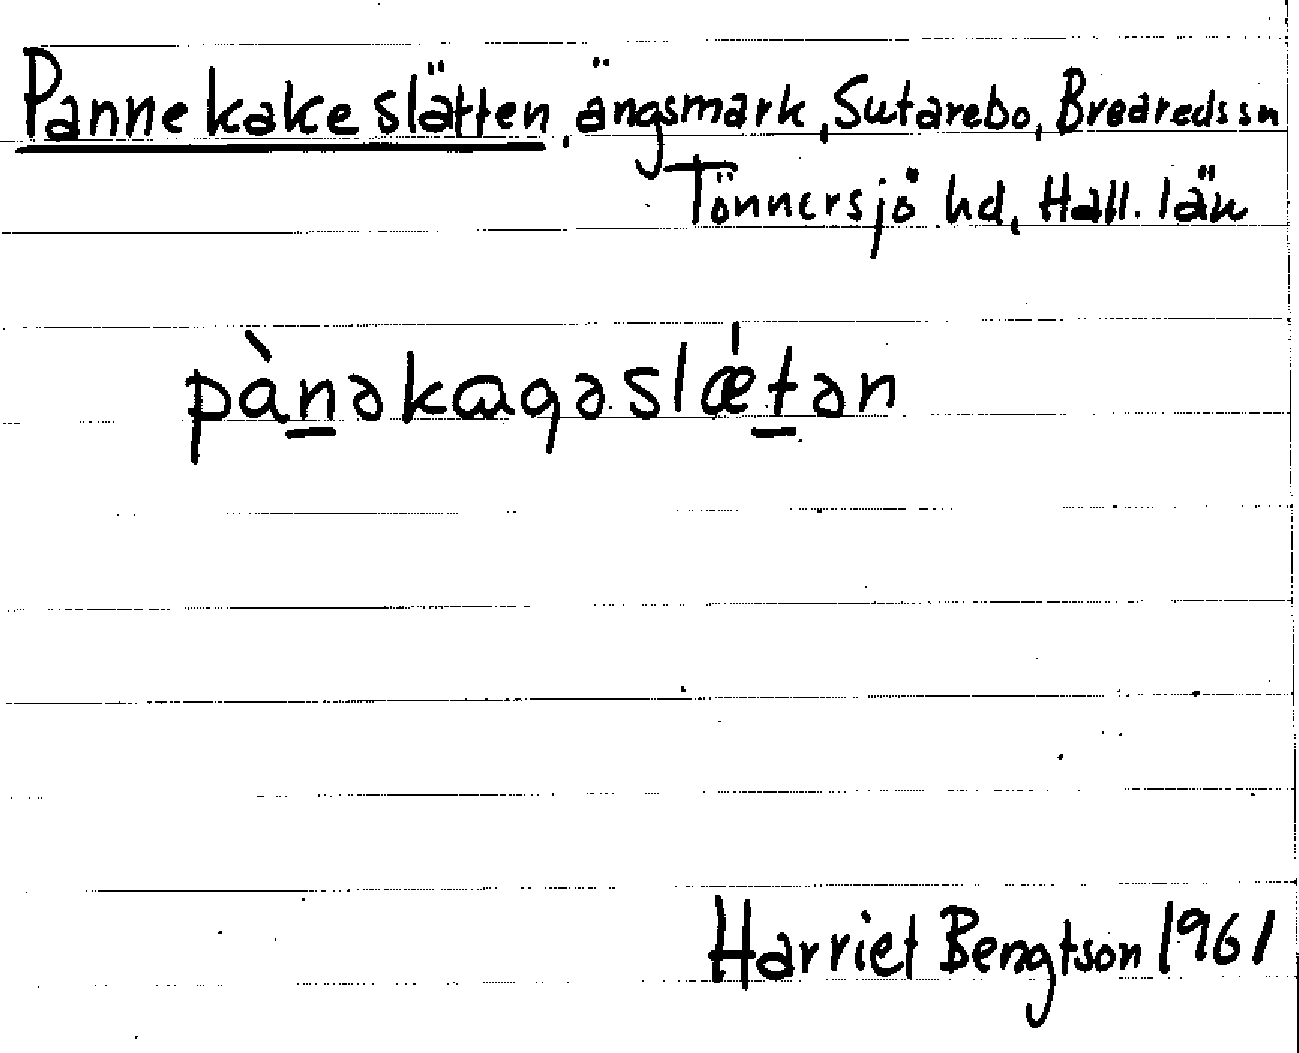 Pannekakeslätten, ängsmark, Sutarebo, Breareds sn
Tönnersjö hd, Hall. län
pàn̲əkɑgəslǽt̲ən
Harriet Bengtson 1961